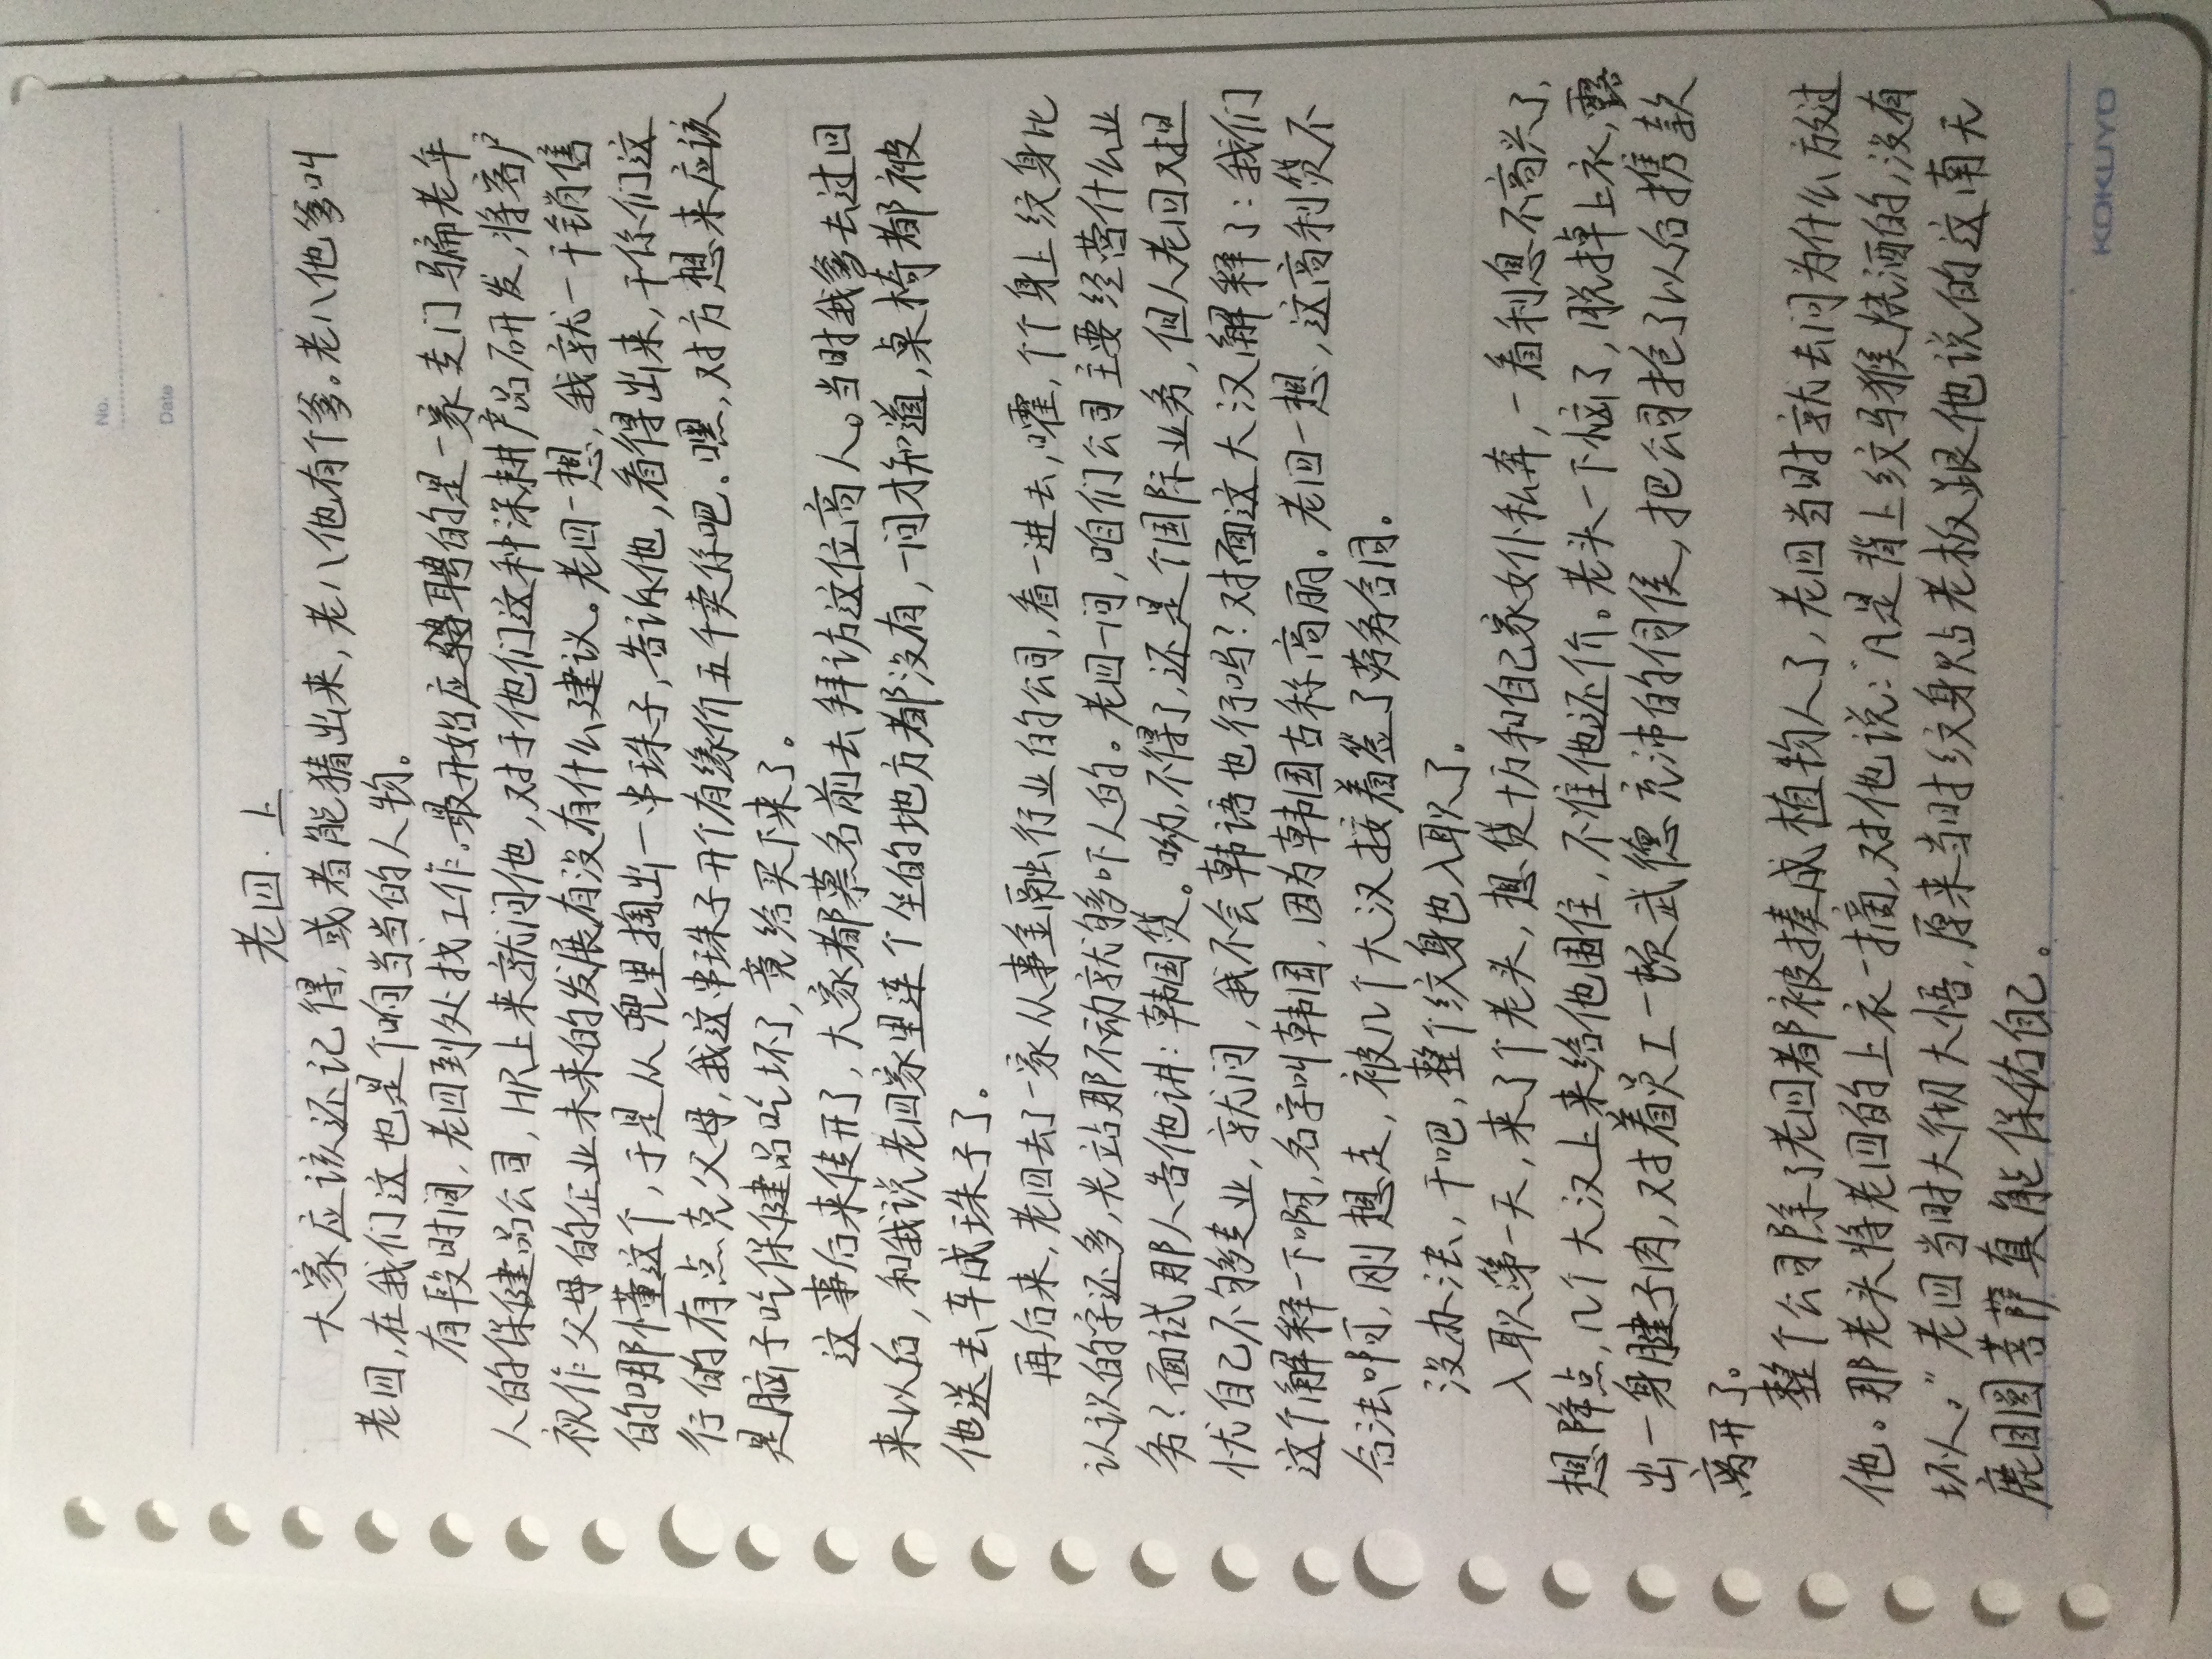 No.
Date
老四·上
大家应该还记得,或者能猜出来,老八他有个爹。老八他爹叫
老四,在我们这也是个响当当的人物。
有段时间,老四到处找工作。最开始应聘的是一家专门骗老年
人的保健品公司,HR上来就问他,对于他们这种深耕产品研发,将客户
视作父母的企业未来的发展有没有什么建议。老四一想,我就一干销售
的哪懂这个,于是从兜里掏出一串珠子,告诉他,看得出来,干你们这
行的有点克父母,我这串珠子开个有缘价五千卖你吧。嘿,对方想来应该
是脑子吃保健品吃坏了,竟给买下来了。
这事后来传开了,大家都慕名前去拜访这位高人。当时我爹去过回
来以后,和我说老四家里连个坐的地方都没有,一问才知道,桌椅都被
他送去车成珠子了。
再后来,老四去了一家从事金融行业的公司,看一进去,嚯,个个身上纹身比
认识的字还多,光站那不动就够吓人的。老四一问,咱们公司主要经营什么业
务?面试那人告他讲:韩国贷。呦,不得了,还是个国际业务,但人老四又担
忧自己不够专业,就问,我不会韩语也行吗?对面这大汉解释了:我们
这个解释一下啊,名字叫韩国,因为韩国古称高丽。老四一想,这高利贷不
合法啊,刚想走,被几个大汉按着签了劳务合同。
没办法,干吧,整个纹身也入职了。
入职第一天,来了个老头,想贷十万和自己家女仆私奔,一看利息不高兴了,
想降点,几个大汉上来给他围住,不准他还价。老头一下恼了,脱掉上衣,露
出一身腱子肉,对着员工一顿武德充沛的伺侯,把公司抢了以后携款
离开了。
整个公司除了老四都被揍成植物人了,老四当时就去问为什么放过
他。那老头将老四的上衣一摘,对他说:“凡是背上纹马猴烧酒的,没有
坏人。”老四当时大彻大悟,原来当时纹身贴老板跟他说的这南无
鹿目圆菩萨真能保佑自己。
KOKUYO